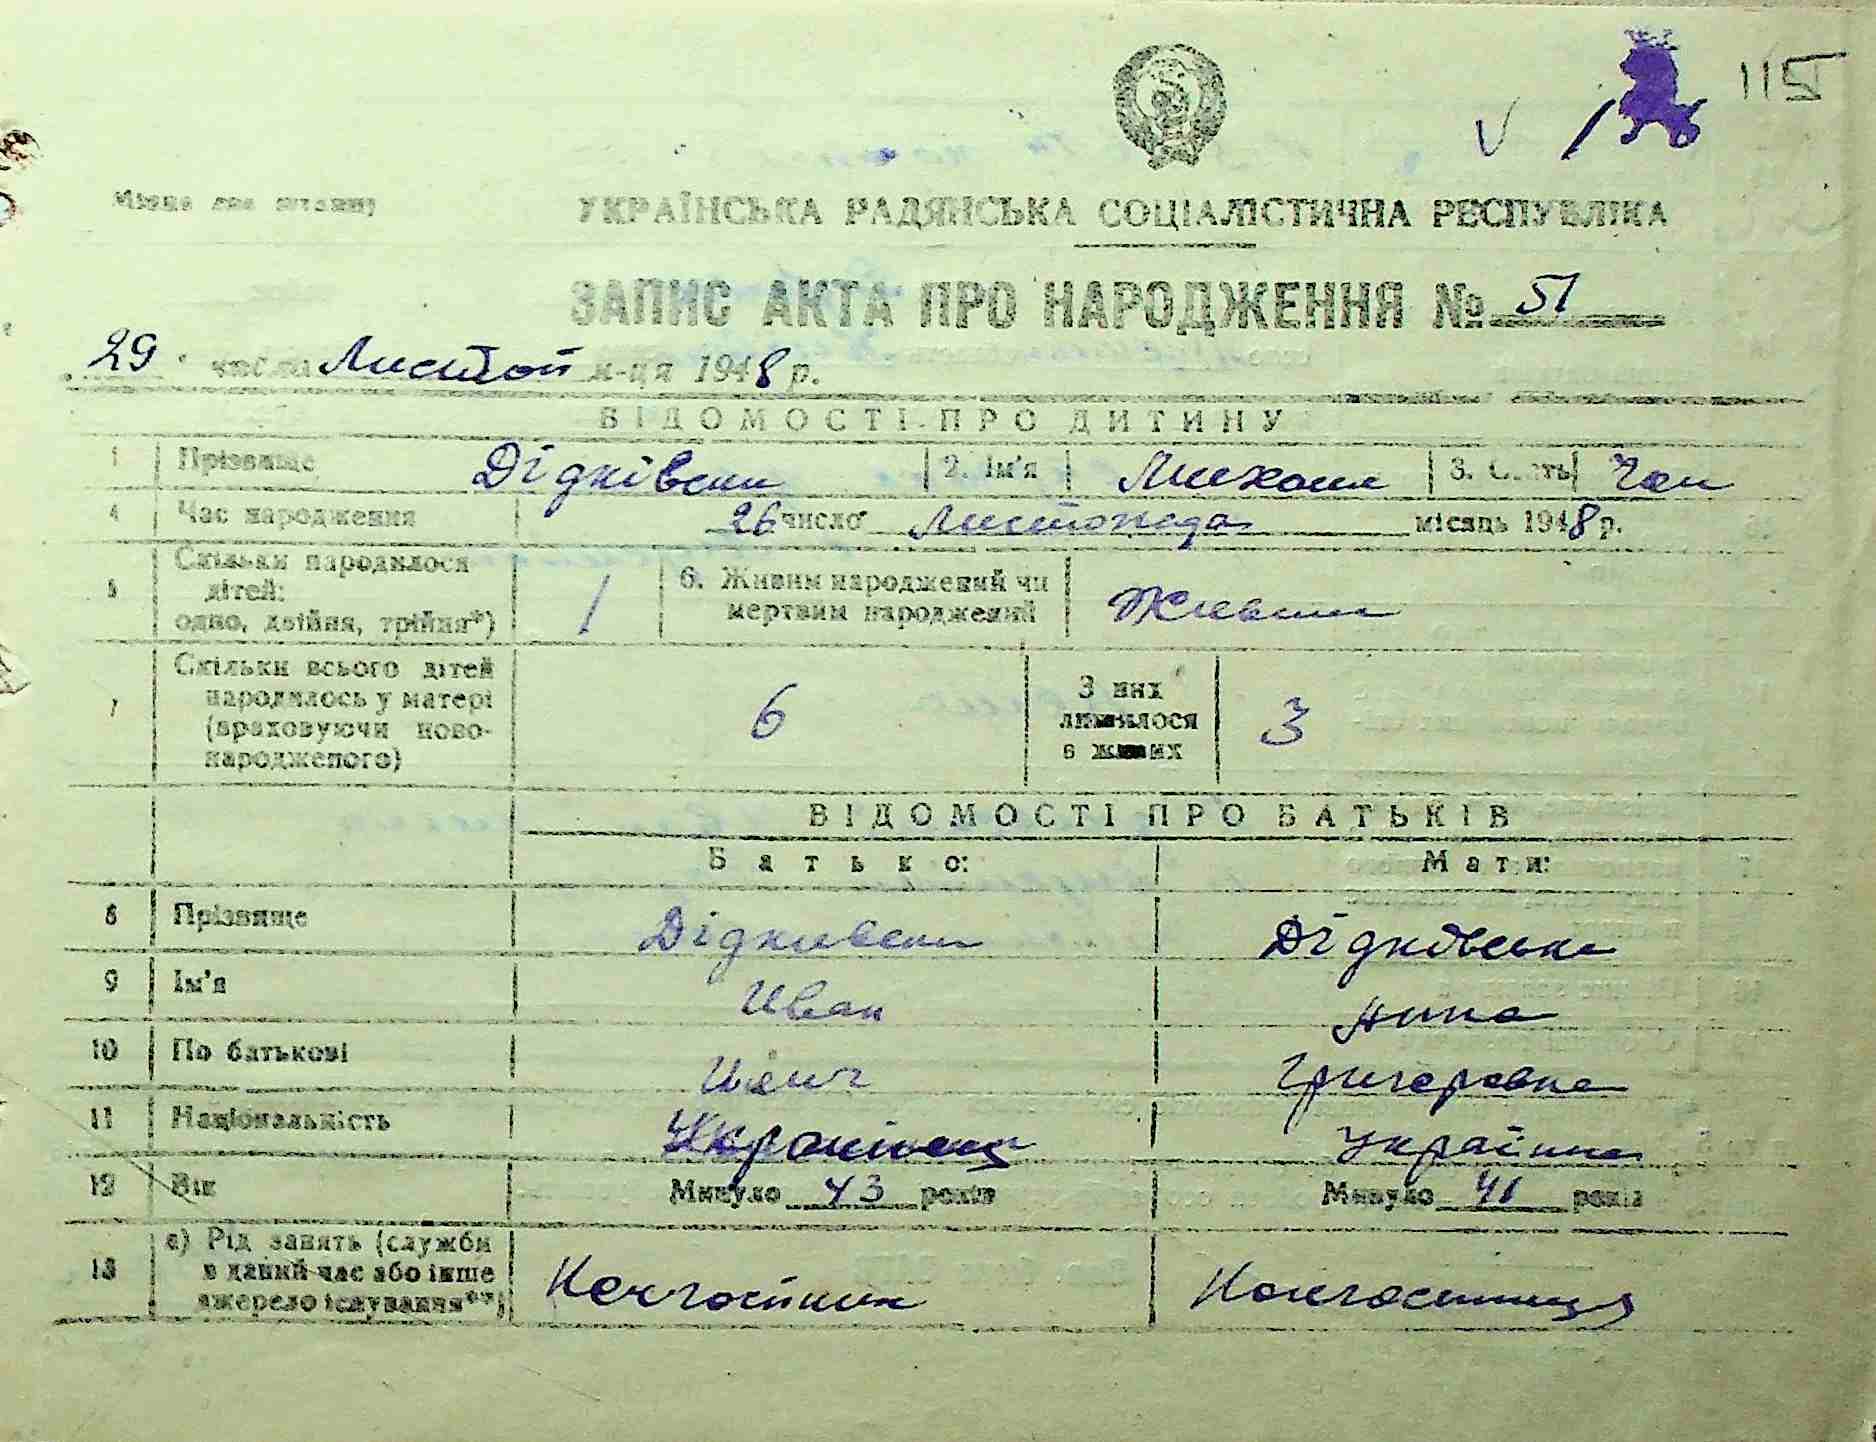 115
V 1
Місце для штампу
УКРАЇНСЬКА РАДЯНСЬКА СОЦІАЛІСТИЧНА РЕСПУБЛІКА
ЗАПИС АКТА ПРО НАРОДЖЕННЯ № 51
29 числа Листоп м-ця 1948 р.
ВІДОМОСТІ ПРО ДИТИНУ
1 Прізвище Дідківски 2. Ім'я Михаил 3. Стать Чол
4 Час народження 26 число Листопада місяць 1948 р.
5 Скільки народилося дітей: одно, двійня, трійня*) 1 6. Живим народжений чи мертвим народжений Живим
7 Скільки всього дітей народилось у матері (враховуючи ново-народженого) 6 З них лишилося в живих 3
ВІДОМОСТІ ПРО БАТЬКІВ
Батько: Мати:
8 Прізвище Дідкивски Дідківська
9 Ім'я Иван Нина
10 По батькові Григоровна
11 Національність Українець Українка
12 Вік Минуло 43 років Минуло 41 років
13 а) Рід занять (служби в даний час або інше джерело існування**) Колгоспник Колгоспниця